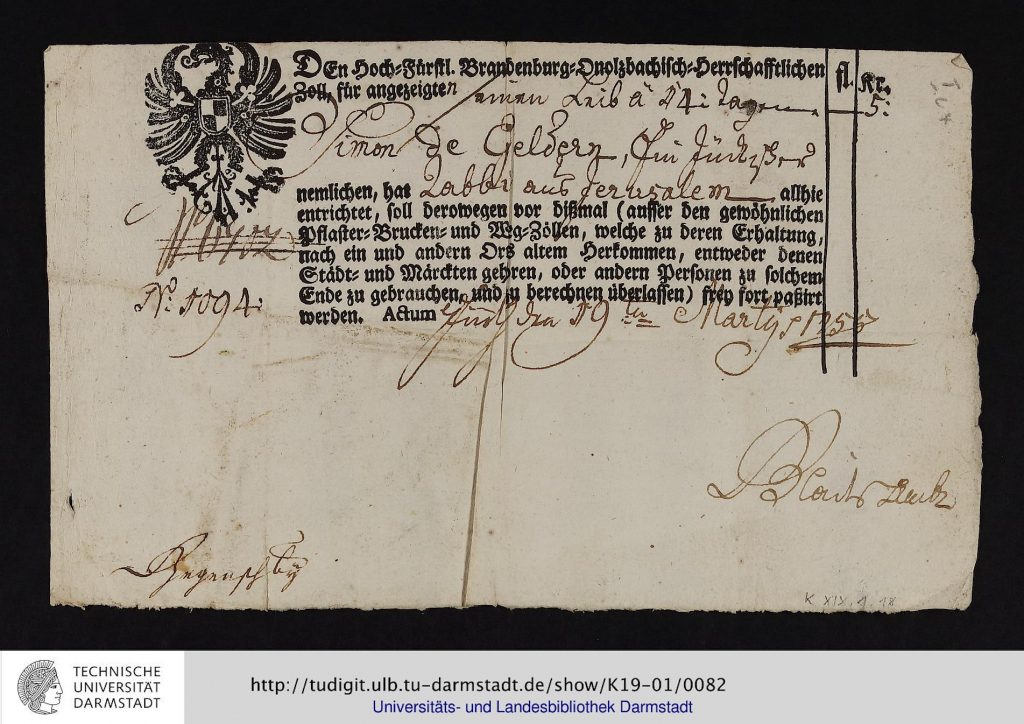 DEn Hoch-Fürstl. Brandenburg-Onolzbachisch-Herrschafftlichen fl. Kr.
Zoll, für angezeigten einen Leib â 14: tagen 5:
Simon De Geldern, Ein Jüdischer
nemlichen, hat Rabbi aus Jerusalem allhie
entrichtet, soll derowegen vor dißmal (ausser den gewöhnlichen
Pflaster-Brucken- und Weg-Zöllen, welche zu deren Erhaltung,
nach ein und andern Orts altem Herkommen, entweder denen
Städt- und Märckten gehren, oder andern Personen zu solchem
Ende zu gebrauchen, und zu berechnen überlassen) frey fort paßirt
werden. Actum den 19 ten Martij 1755
No. 1094:
K XIX, 1, 18
TECHNISCHE
UNIVERSITÄT
DARMSTADT
http://tudigit.ulb.tu-darmstadt.de/show/K19-01/0082
Universitäts- und Landesbibliothek Darmstadt